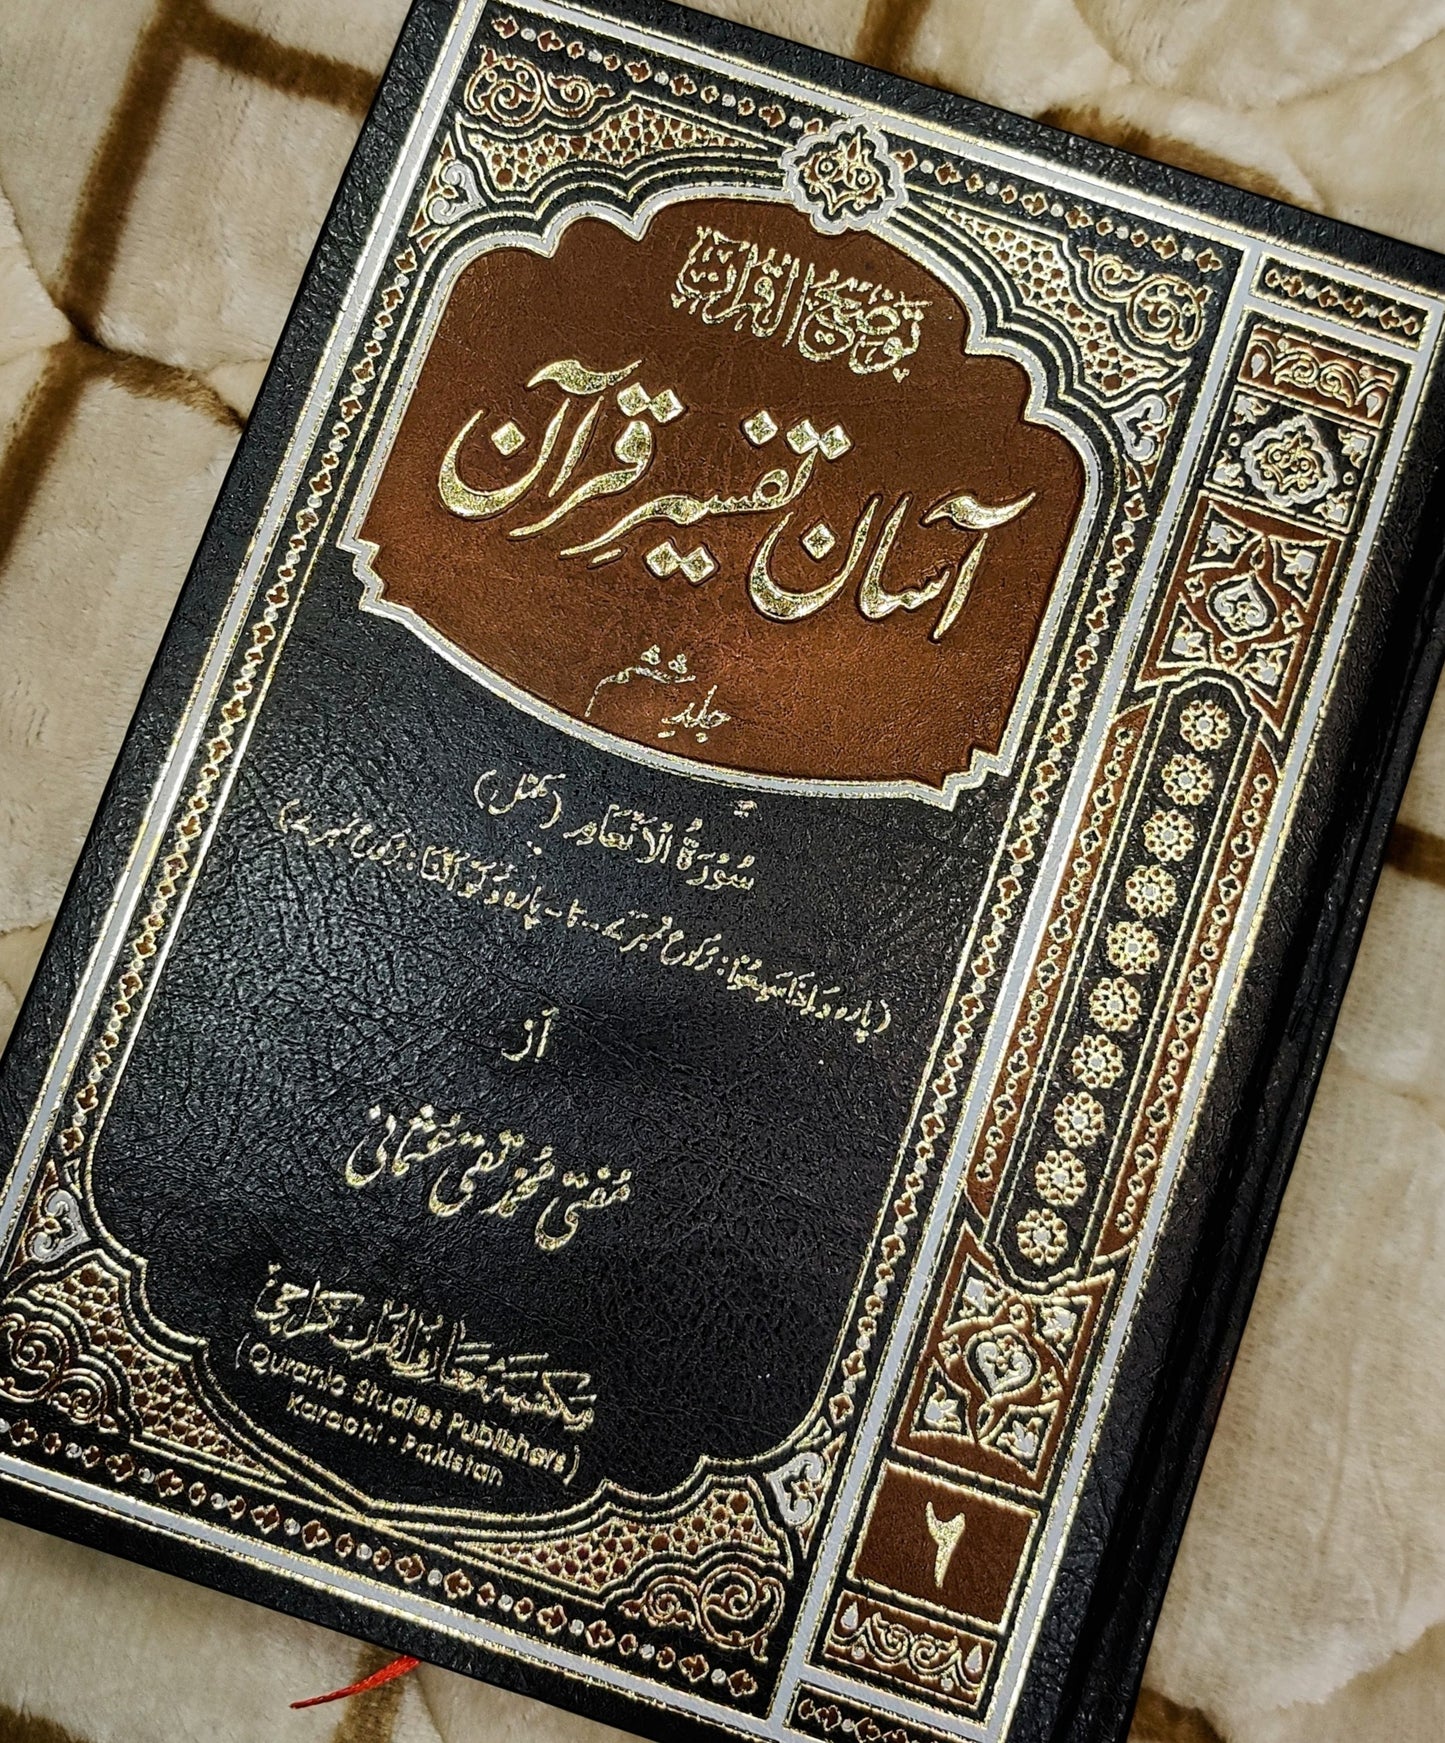 توضیح القرآن
آسان تفسیرِ قرآن
جلدِ ششم
سُوْرَۃُ الْاَنْعَام (مکمّل)
(پارہ وَاِذَا سَمِعُوْا: رُکوع نمبر ۷ .. تا - پارہ وَلَوْ اَنَّنَا: رُکوع نمبر ۷)
اَز
مُفتی مُحمّد تقی عُثمانی
مکتبہ معارف القرآن کراچی
(Quranic Studies Publishers)
Karachi - Pakistan
۶